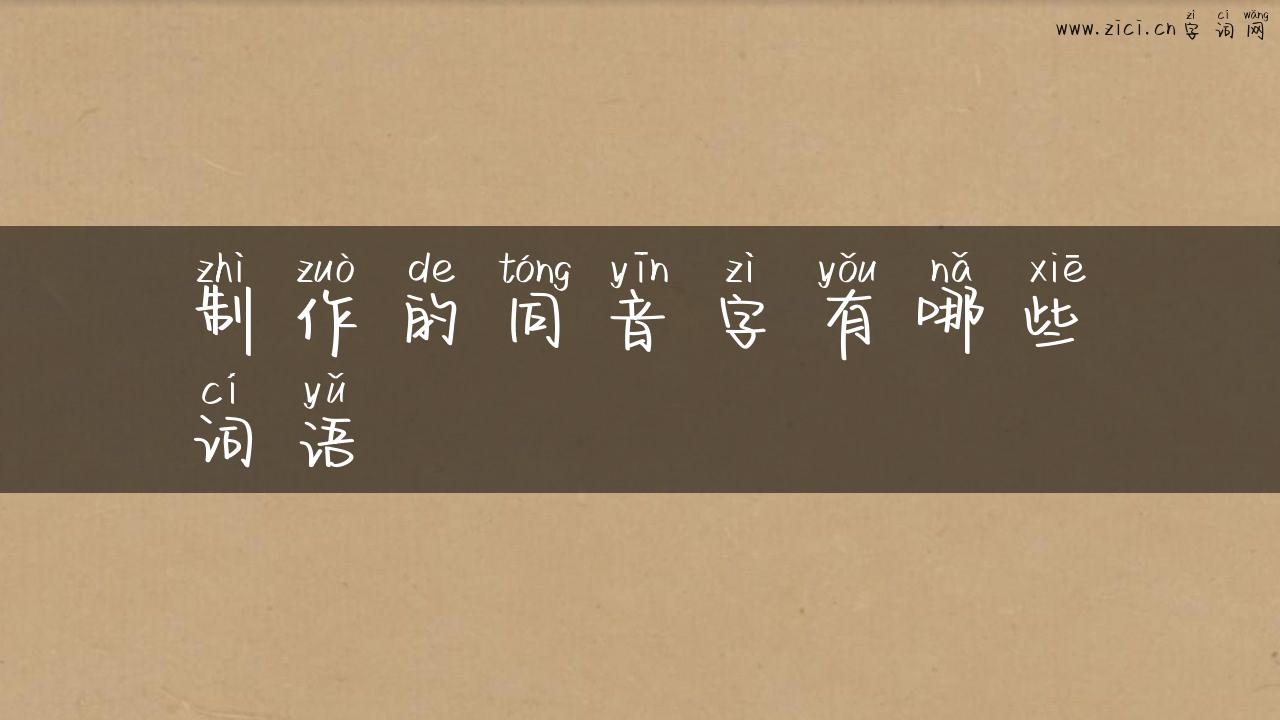 zì cí wǎng
www.zici.cn字词网
zhì zuò de tóng yīn zì yǒu nǎ xiē
制作的同音字有哪些
cí yǔ
词语